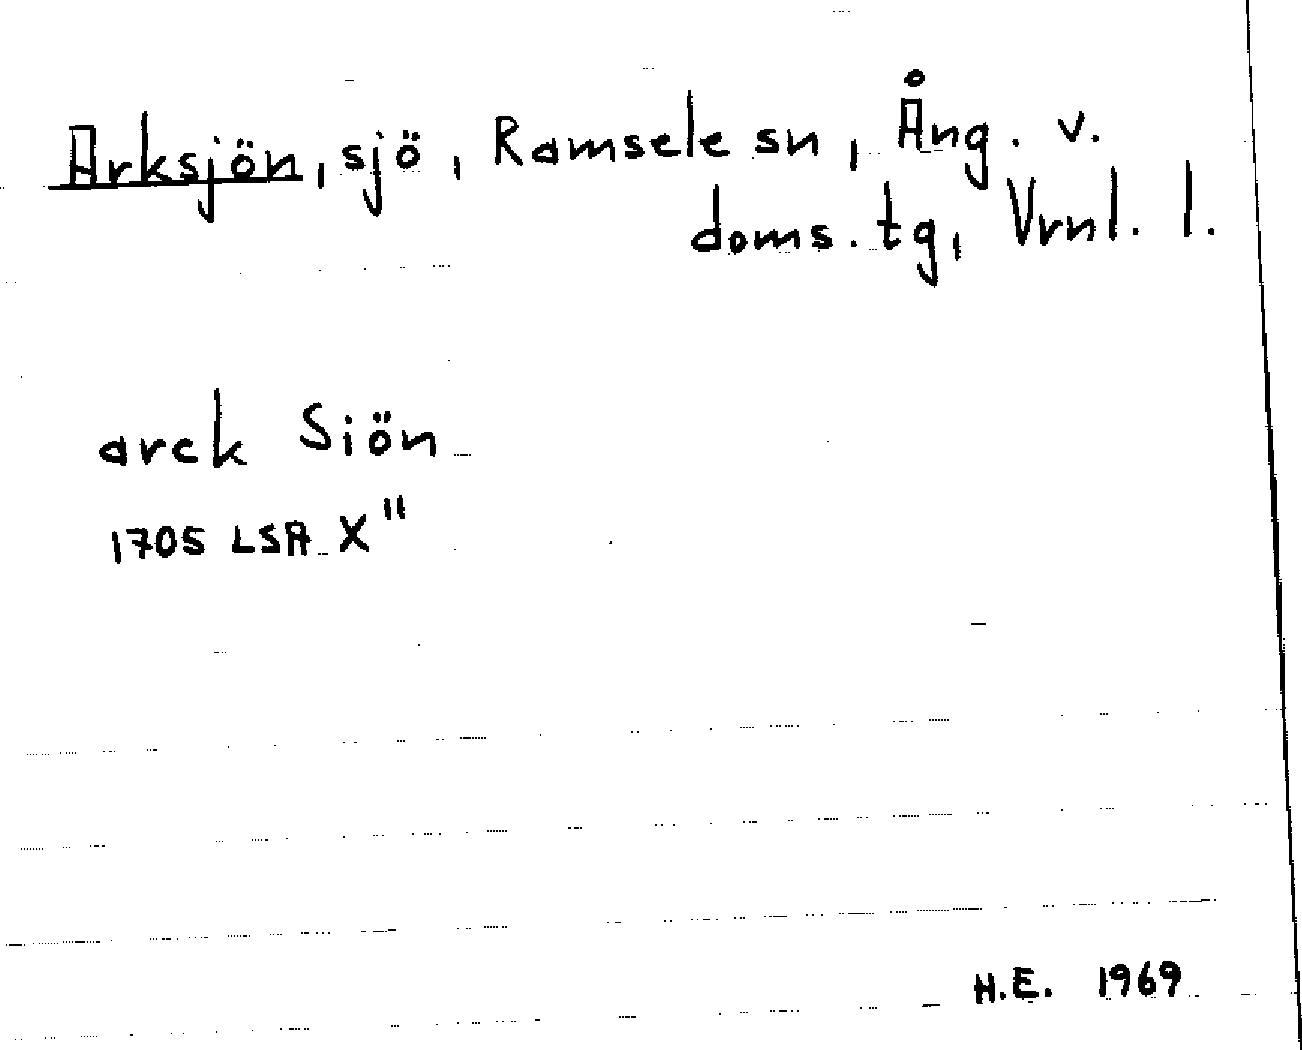 Arksjön, sjö, Ramsele sn, Ång. v.
doms. tg, Vrnl. l.
arck Siön
1705 LSA X"
H.E. 1969